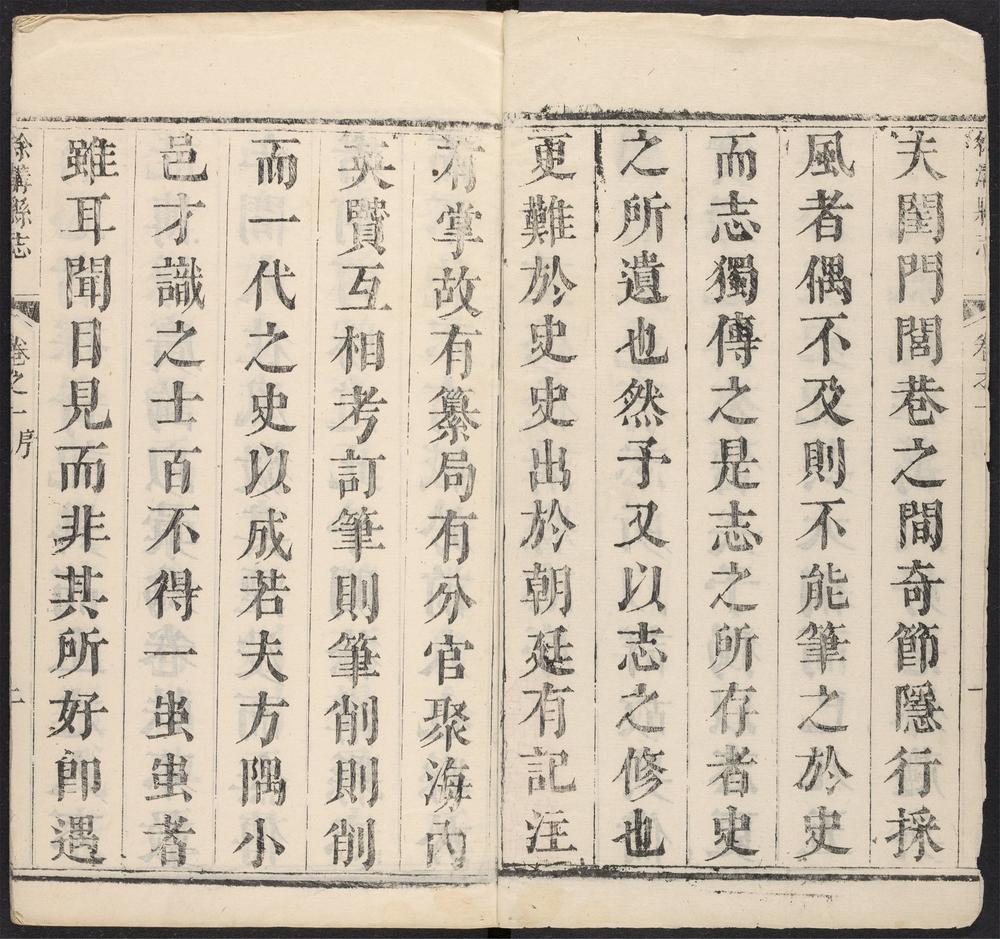 夫閨門閭巷之間奇節隱行採
風者偶不及則不能筆之於史
而志獨傳之是志之所存者史
之所遺也然予又以志之修也
更難於史史出於朝廷有記注
有掌故有纂局有分官聚海內
英賢互相考訂筆則筆削則削
而一代之史以成若夫方隅小
邑才識之士百不得一蚩蚩者
雖耳聞目見而非其所好卽遇
徐溝縣志 卷之一序 二